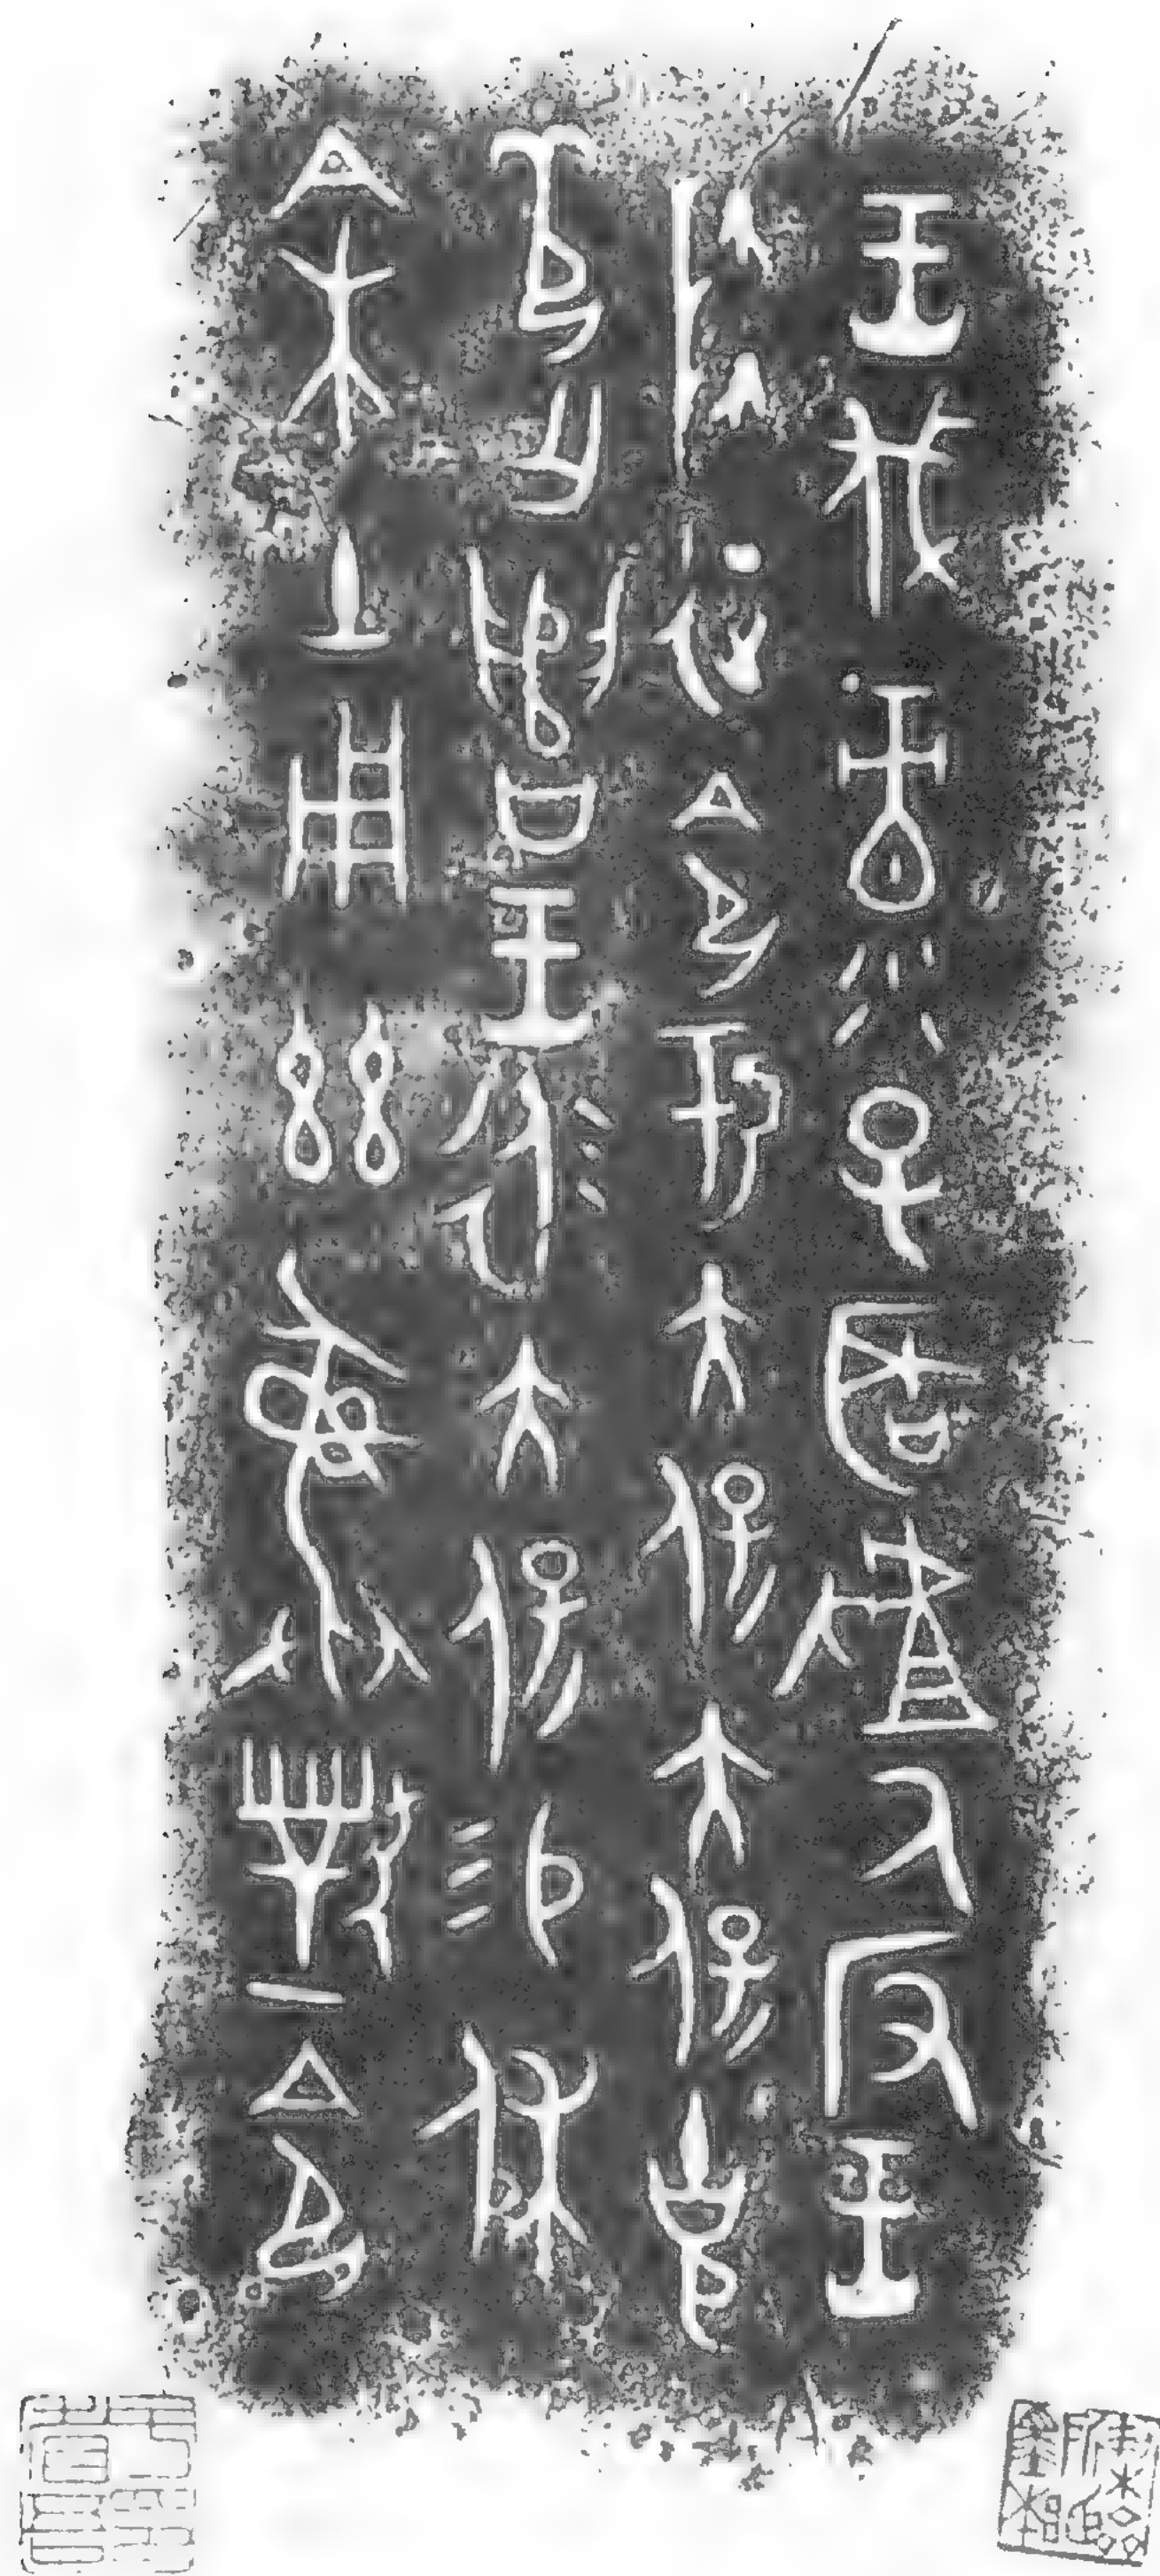 王伐彔子𦔻𠭯氒反王
降征令于大保大保克
敬亡遣王永大保易休
余土用茲彝對令